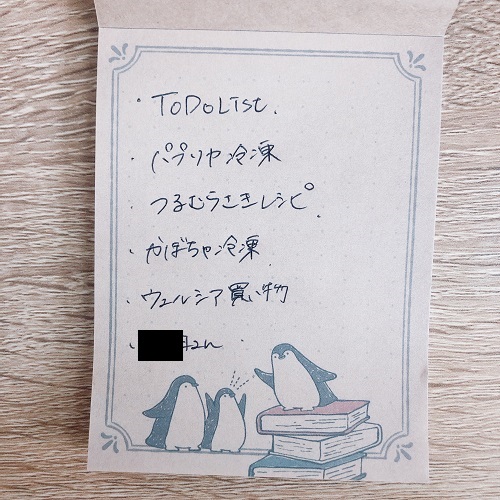 ・ToDoList.
・パプリカ冷凍
・つるむらさきレシピ.
・かぼちゃ冷凍
・ウェルシア買い物